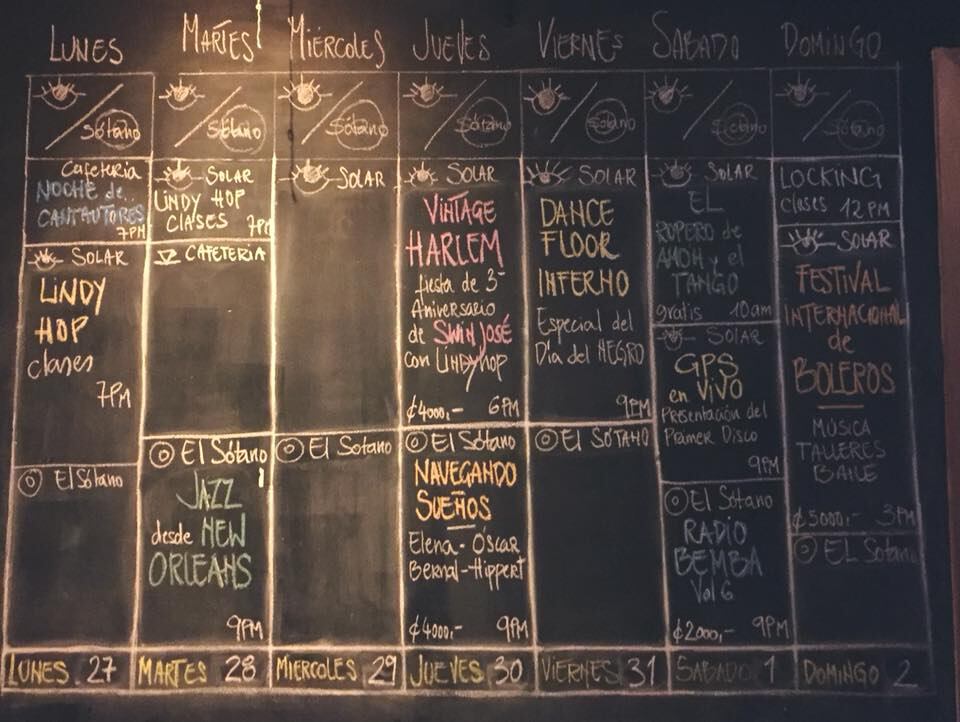 LUNES
MARTES
MIÉRCOLES
JUEVES
VIERNES
SABADO
DOMINGO
Sótano
Sótano
Sótano
Sótano
Sótano
Sótano
Sótano
Cafeteria
NOCHE de
CANTAUTORES
7PM
SOLAR
LINDY
HOP
clases
7PM
El Sótano
SOLAR
LINDY HOP
CLASES 7PM
CAFETERIA
El Sótano
JAZZ
desde NEW
ORLEANS
9PM
SOLAR
El Sótano
SOLAR
VINTAGE
HARLEM
fiesta de 3er
Aniversario
de SWING JOSÉ
con LINDYhop
₡4000,- 6PM
El Sótano
NAVEGANDO
SUEÑOS
Elena - Óscar
Bernal - Hippert
₡4000,- 9PM
SOLAR
DANCE
FLOOR
INFERNO
Especial del
Día del NEGRO
9PM
El SÓTANO
SOLAR
EL
ROPERO de
AMOH y el
TANGO
gratis 10am
SOLAR
GPS
en VIVO
Presentación del
Primer Disco
9PM
El Sótano
RADIO
BEMBA
Vol 6
₡2000,- 9PM
LOCKING
clases 12PM
SOLAR
FESTIVAL
INTERNACIONAL
de
BOLEROS
MÚSICA
TALLERES
BAILE
₡5000,- 3PM
EL Sotano
LUNES 27
MARTES 28
MIERCOLES 29
JUEVES 30
VIERNES 31
SABADO 1
DOMINGO 2